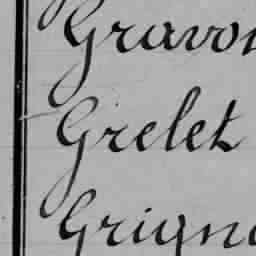 Gravo
Grelet
Grign